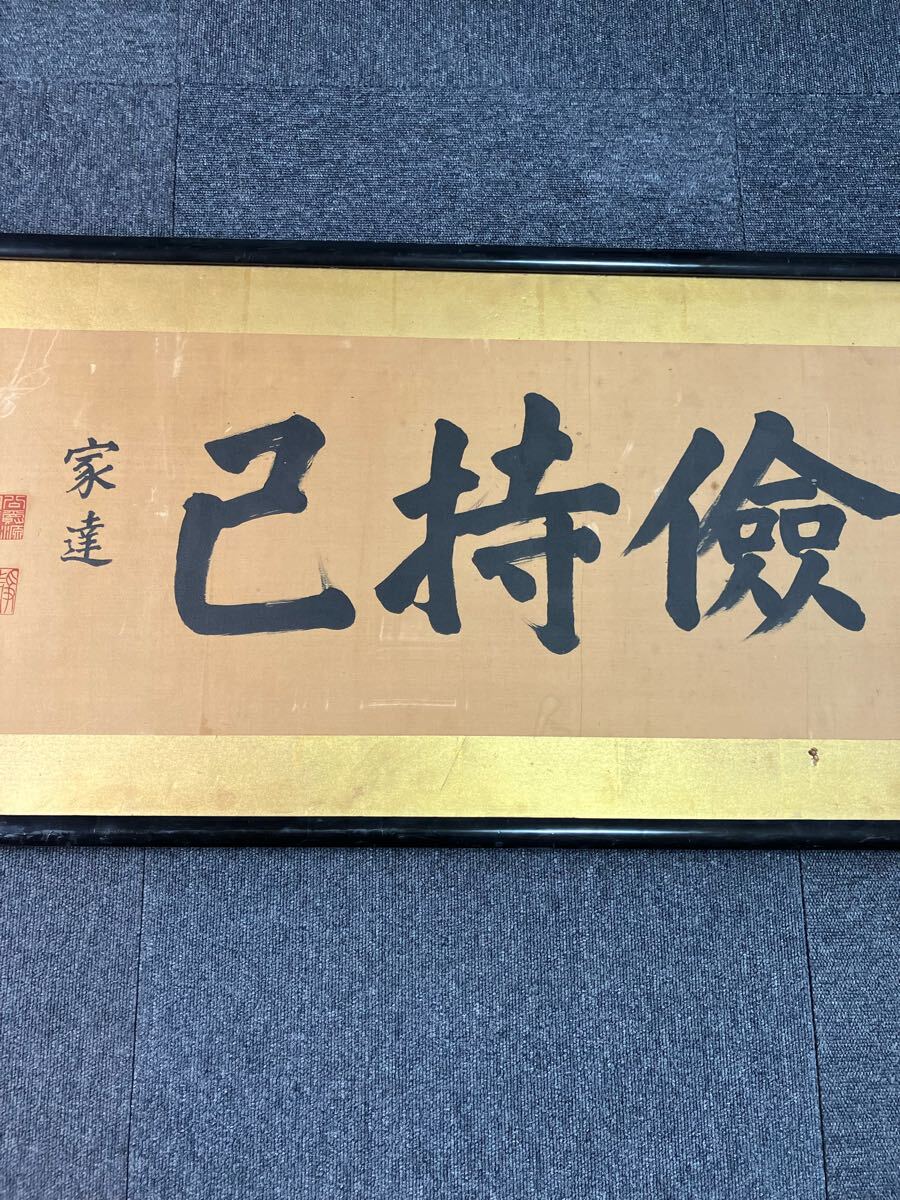 儉持己
家達